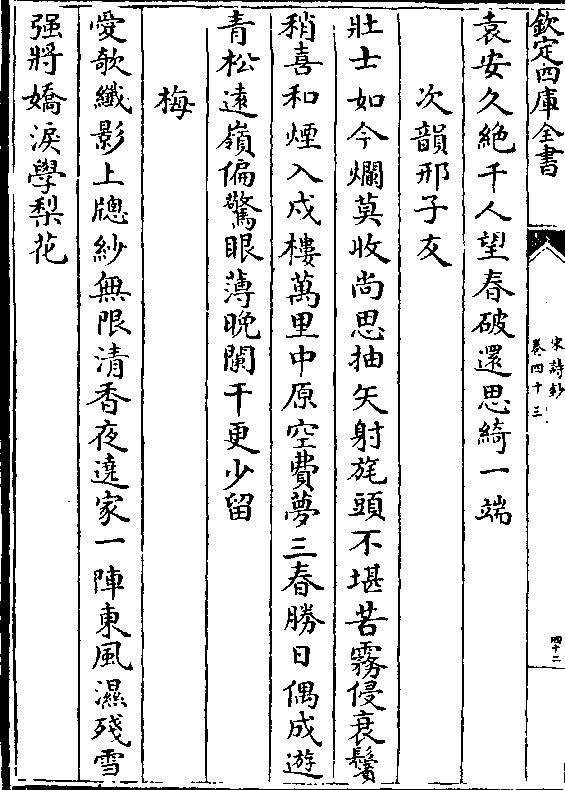 欽定四庫全書
宋詩鈔
卷四十三
四十二
袁安久絶千人望春破還思綺一端
次韻邢子友
壯士如今爛莫收尚思抽矢射旄頭不堪苦霧侵衰鬢
稍喜和煙入戍樓萬里中原空費夢三春勝日偶成遊
青松遠嶺偏驚眼薄晚闌干更少留
梅
愛欹纖影上牕紗無限清香夜遶家一陣東風濕殘雪
强將嬌淚學梨花